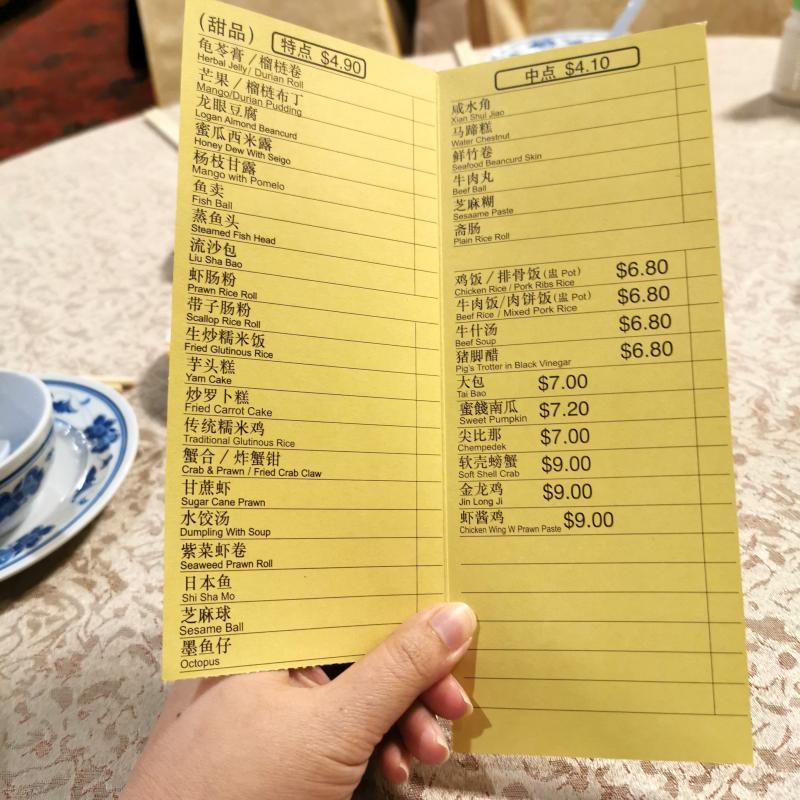 (甜品) 特点 $4.90
龟苓膏 / 榴梿卷
Herbal Jelly / Durian Roll
芒果 / 榴梿布丁
Mango/Durian Pudding
龙眼豆腐
Logan Almond Beancurd
蜜瓜西米露
Honey Dew With Seigo
杨枝甘露
Mango with Pomelo
鱼卖
Fish Ball
蒸鱼头
Steamed Fish Head
流沙包
Liu Sha Bao
虾肠粉
Prawn Rice Roll
带子肠粉
Scallop Rice Roll
生炒糯米饭
Fried Glutinous Rice
芋头糕
Yam Cake
炒罗卜糕
Fried Carrot Cake
传统糯米鸡
Traditional Glutinous Rice
蟹合 / 炸蟹钳
Crab & Prawn / Fried Crab Claw
甘蔗虾
Sugar Cane Prawn
水饺汤
Dumpling With Soup
紫菜虾卷
Seaweed Prawn Roll
日本鱼
Shi Sha Mo
芝麻球
Sesame Ball
墨鱼仔
Octopus
中点 $4.10
咸水角
Xian Shui Jiao
马蹄糕
Water Chestnut
鲜竹卷
Seafood Beancurd Skin
牛肉丸
Beef Ball
芝麻糊
Sesaame Paste
斋肠
Plain Rice Roll
鸡饭 / 排骨饭 (盅 Pot) $6.80
Chicken Rice / Pork Ribs Rice
牛肉饭/肉饼饭 (盅 Pot) $6.80
Beef Rice / Mixed Pork Rice
牛什汤 $6.80
Beef Soup
猪脚醋 $6.80
Pig's Trotter in Black Vinegar
大包 $7.00
Tai Bao
蜜餞南瓜 $7.20
Sweet Pumpkin
尖比那 $7.00
Chempedek
软壳螃蟹 $9.00
Soft Shell Crab
金龙鸡 $9.00
Jin Long Ji
虾酱鸡 $9.00
Chicken Wing W Prawn Paste